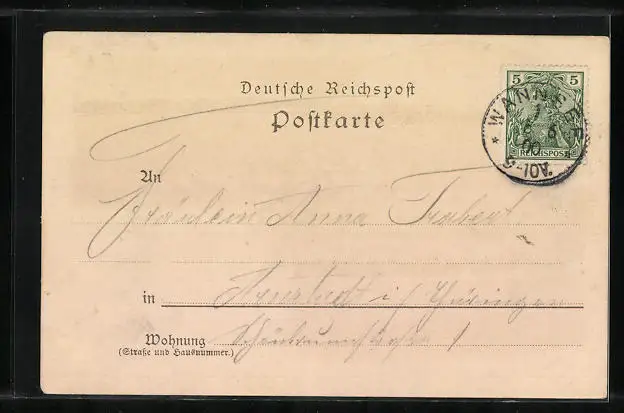 Deutsche Reichspost
Postkarte
5 5
REICHSPOST
WANNSEE
6
00
9-10V.
An
Fräulein Anna
in Arnstadt i/ Thüringen
Wohnung
(Straße und Hausnummer.)
1